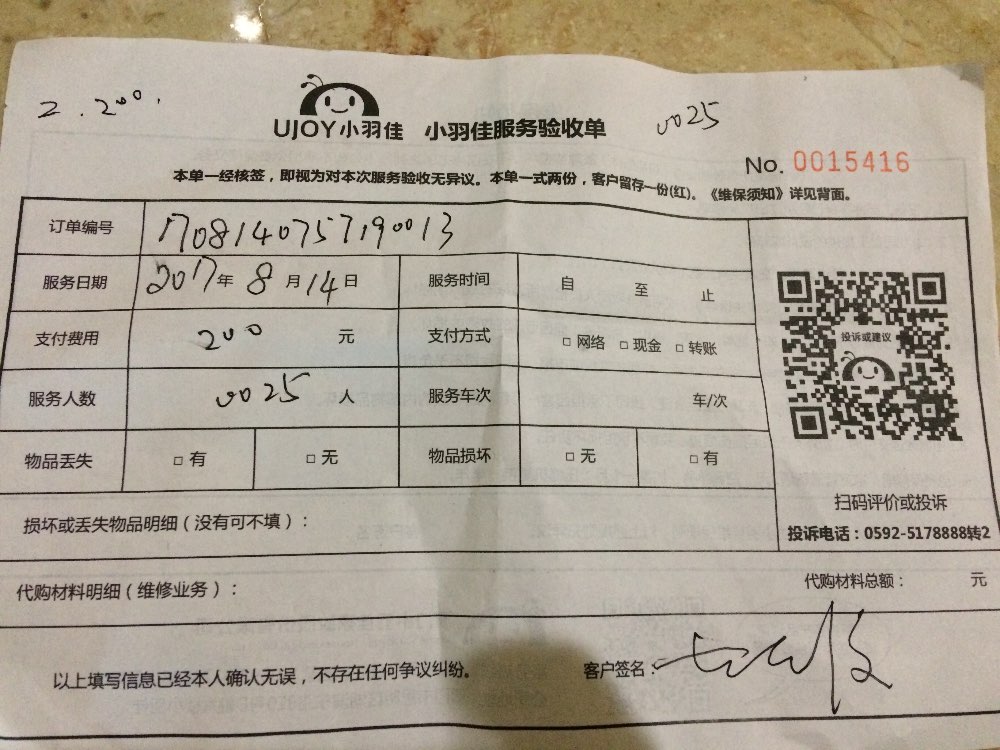 2.200.
0025
UJOY小羽佳 小羽佳服务验收单
No. 0015416
本单一经核签，即视为对本次服务验收无异议。本单一式两份，客户留存一份(红)。《维保须知》详见背面。
订单编号 1708140757190013
服务日期 2017年 8月14日 服务时间 自 至 止
支付费用 200 元 支付方式 □ 网络 □ 现金 □ 转账
投诉或建议
服务人数 0025 人 服务车次 车/次
物品丢失 □ 有 □ 无 物品损坏 □ 无 □ 有
扫码评价或投诉
损坏或丢失物品明细（没有可不填）：
投诉电话：0592-5178888转2
代购材料明细（维修业务）： 代购材料总额： 元
以上填写信息已经本人确认无误，不存在任何争议纠纷。 客户签名：